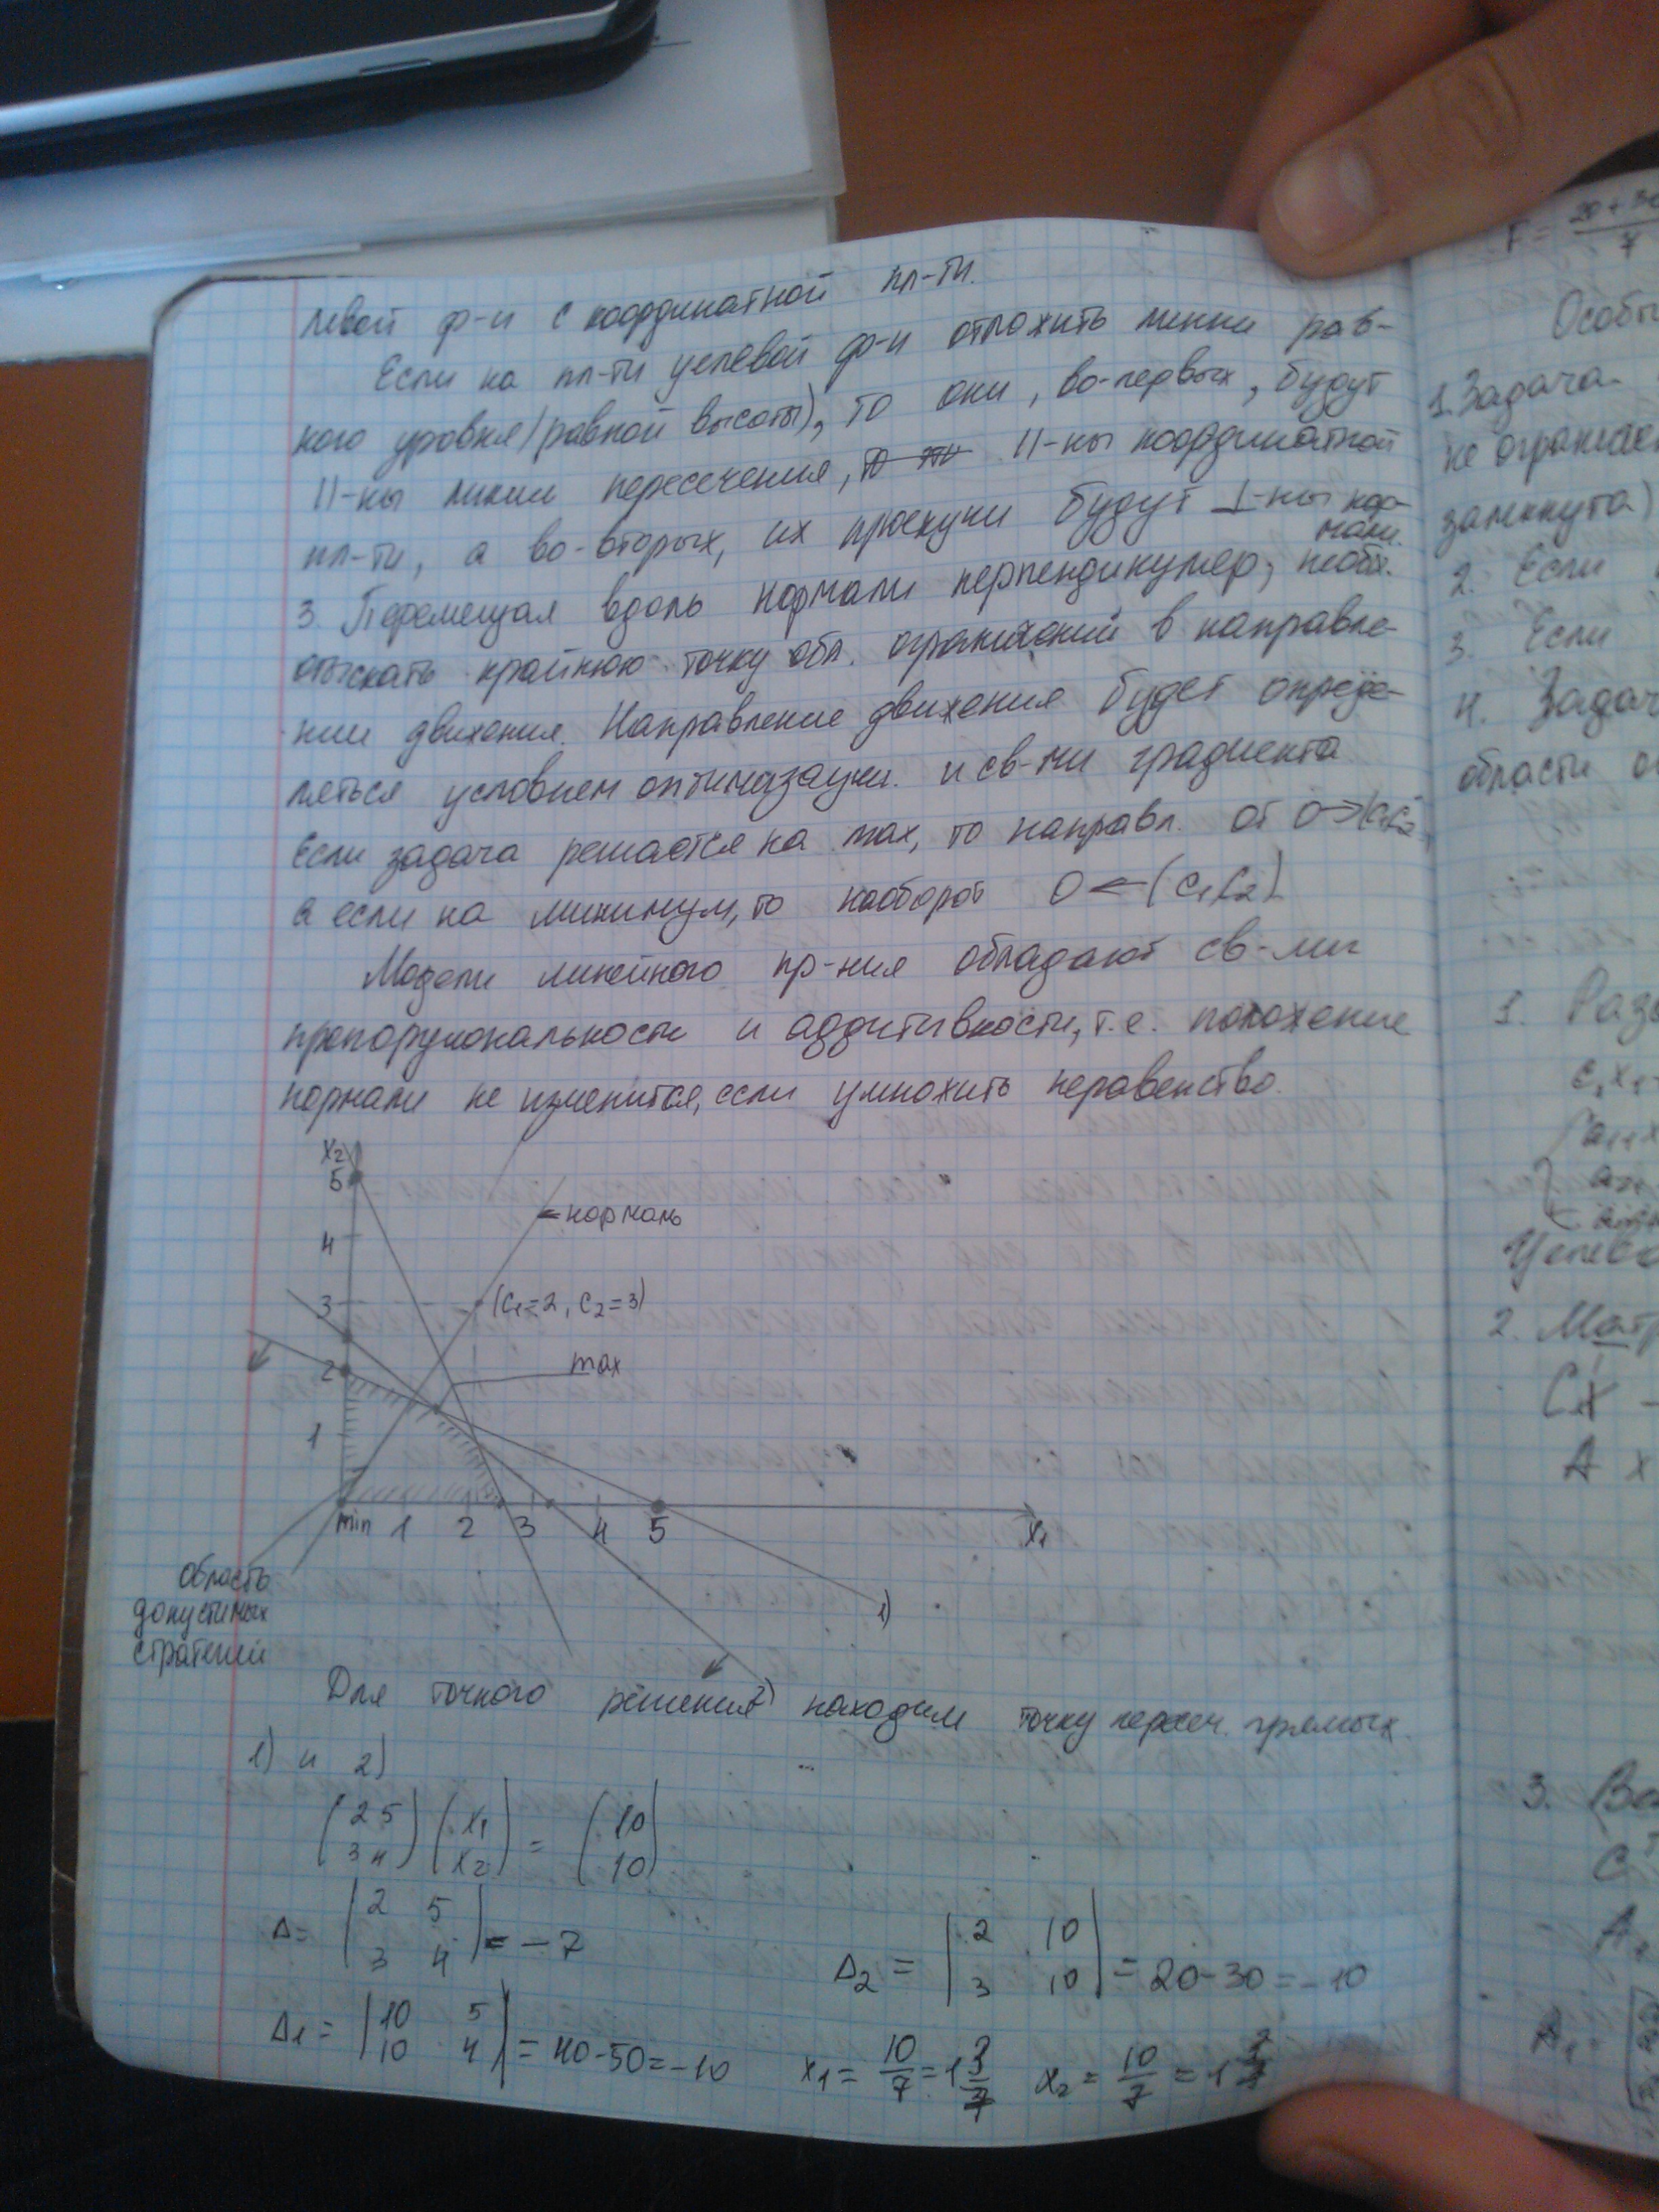 левой ф-и с координатной пл-ти.
Если на пл-ти целевой ф-и отложить линии рав-
ного уровня (равной высоты), то они, во-первых, будут
||-ны линии пересечения, ||-ны координатной
пл-ти, а во-вторых, их проекции будут ⊥-ны нор-
мали.
3. Перемещая вдоль нормали перпендикуляр, необх.
отыскать крайнюю точку обл. ограничений в направле-
нии движения. Направление движения будет опреде-
ляться условием оптимизации. и св-ми градиента
Если задача решается на max, то направл. от 0→(c₁c₂)
а если на минимум, то наоборот 0←(c₁c₂)
Модели линейного пр-ния обладают св-ми
пропорциональности и аддитивности, т.е. положение
нормали не изменится, если умножить неравенство.
x₂
5
4
3
2
1
нормаль
(c₁=2, c₂=3)
max
min 1 2 3 4 5
x₁
1)
2)
область
допустимых
стратегий
Для точного решения находим точку пересеч. прямых
1) и 2)
(2 5) (x₁) = (10)
(3 4) (x₂) (10)
Δ= |2 5|
|3 4| = -7
Δ₂ = |2 10|
|3 10| = 20-30=-10
Δ₁= |10 5|
|10 4| = 40-50=-10
x₁= 10/7 = 1 3/7 x₂= 10/7 = 1 3/7
F= 20+30/7
Особы
1. Задача
не огранич
замкнута)
2. Если
3. Если
4. Задач
области о
1.
c₁x₁
a₁₁x
Целево
2. Матр
CX
A x
3.